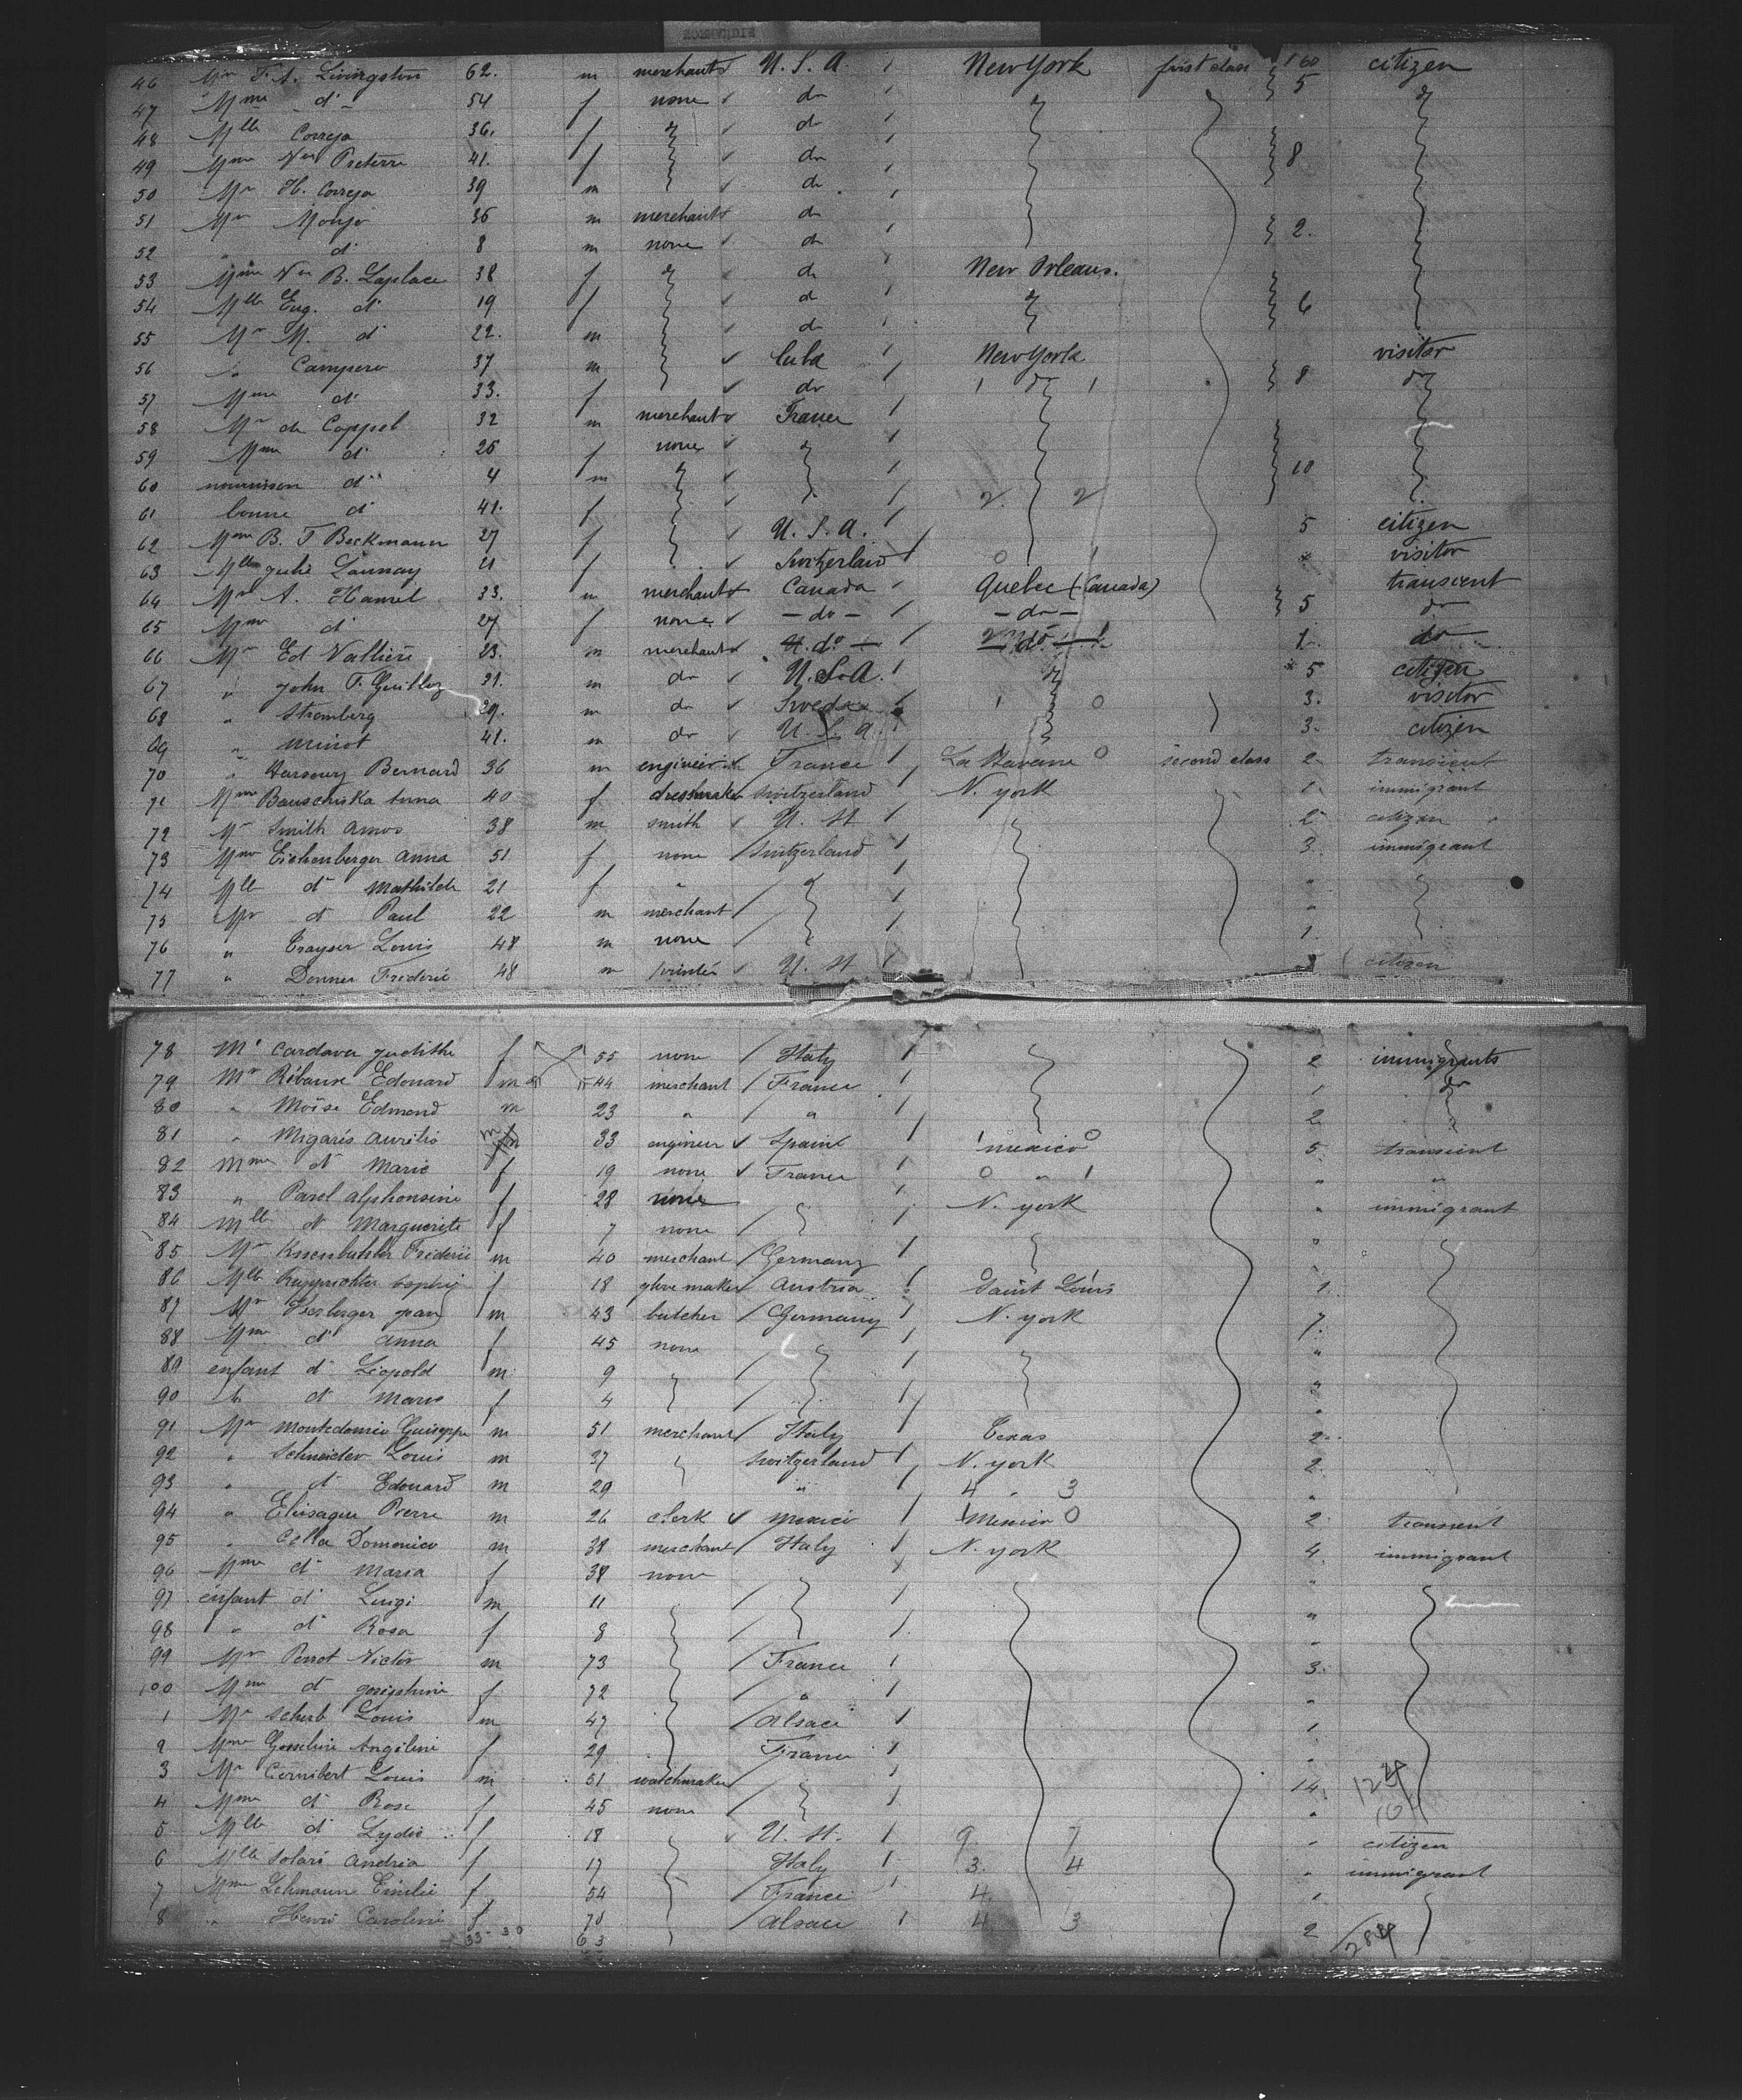 46 Mr F. A. Livingston 62. m merchant U. S. A. New York first class 160 5 citizen
47 Mme d° 54 f none do
48 Mlle Correja 36. f do
49 Mme Vve Preterre 41. f do 8
50 Mr H. Correja 39 m do
51 Mr Monjo 36 m merchant do
52 " d° 8 m none do 2.
53 Mme Vve B. Laplace 38 f do New Orleans.
54 Mlle Eug. d° 19 f do 6
55 Mr M. d° 22. m do
56 " Campero 37 m Cuba New York visitor
57 Mme d° 33. f do 8 do
58 Mr de Coppet 32 m merchant France
59 Mme d° 26 f none
60 nourrisson d° 4 m 10
61 bonne d° 41. f 2 2
62 Mme B. T Beckmann 27 f U. S. A. 5 citizen
63 Mlle Julie Launay f Switzerland 0 1 visitor
64 Mr A. Hamel 33. m merchant Canada Quebec (Canada) transient
65 Mme d° 27 f none - do - - do - 5 do
66 Mr Ed Vallière 23. m merchant d° 1. do
67 " John T. Guilloz 31. m do U. S. A. 5 citizen
68 " Stromberg 29. m do Sweden 1 0 3. visitor
69 " Minot 41. m do U. S. A. 3. citizen
70 " Bernard 36 m engineer France La Havane 0 second class 2 transient
71 Mme Anna 40 f dressmaker Switzerland N. york 1 immigrant
72 Mr Smith Amos 38 m smith U. St 2 citizen
73 Mme Eichenberger Anna 51 f none Switzerland 3. immigrant
74 Mlle d° Mathilde 21 f "
75 Mr d° Paul 22 m merchant "
76 " Trayser Louis 48 m none 1.
77 " Donner Frederic 48 m U. St citizen
78 Judithe f 55 none Italy 2 immigrants
79 Mr Edouard m 44 merchant France 1 do
80 " Moïse Edmond m 23 " " 2
81 " Migarès Aurelio m 33 engineer Spain 1 mexico 0 5. transient
82 Mme d° Marie f 19 none France 0 " 1 " "
83 " Parel Alphonsine f 28 none N. york " immigrant
84 Mlle d° Marguerite f 7 none
85 Mr Frederic m 40 merchant Germany "
86 Mlle Sophie f 18 glove maker Austria 0 Saint Louis 1 1.
87 Mr m 43 butcher Germany N. york 7.
88 Mme d° Anna f 45 none "
89 enfant d° Léopold m 9 "
90 d° Marie f 4 "
91 Mr Guiseppe m 51 merchant Italy Texas 2
92 " Schneider Louis m 37 Switzerland N. york 2
93 " d° Edouard m 29 " 4 " 3 "
94 " Elisague Pierre m 26 clerk Mexico 1 Mexico 0 2 transient
95 " Cella Domenico m 38 merchant Italy N. york 4. immigrant
96 Mme d° Maria f 38 none "
97 enfant d° Luigi m 11 "
98 " d° Rosa f 8 "
99 Mr Perrot Victor m 73 France 3.
100 Mme d° Josephine f 72 " "
1 Mr Scherb Louis m 47 Alsace 1
2 Mme Gosseline Angeline f 29 France "
3 Mr Louis m 51 watchmaker 14. 124
4 Mme d° Rose f 45 none " 10
5 Mlle d° Lydie f 18 U. St. 9 7 " citizen
6 Mlle Solari Andria f 17 Italy 3. 4 " immigrant
7 Mme Lehmann Emilie f 54 France 4
8 " Henri Caroline f 70 Alsace 4 3 2 284
33 - 30 63